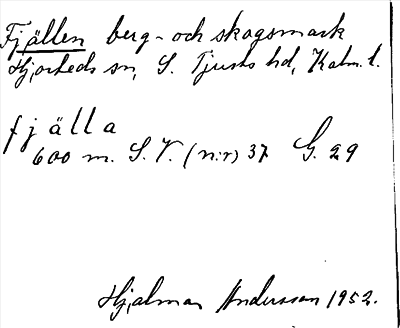 Fjällen berg- och skogsmark
Hjorteds sn, S. Tjusts hd, Kalm. l.
fjälla
600 m. S.V. (n:r) 37 G. 29
Hjalmar Andersson 1952.